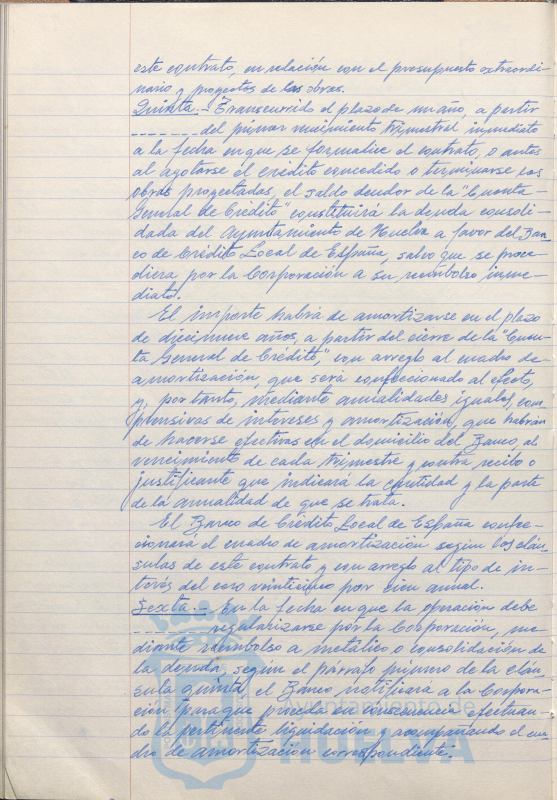 este contrato, en relación con el presupuesto extraordi-
nario y proyectos de las obras.
Quinta.- Transcurrido el plazo de un año, a partir
------- del primer vencimiento trimestral inmediato
a la fecha en que se formalice el contrato, o antes
al agotarse el crédito concedido o terminarse las
obras proyectadas, el saldo deudor de la "Cuenta
General de Crédito" constituirá la deuda consoli-
dada del Ayuntamiento de Huelva a favor del Ban-
co de Crédito Local de España, salvo que se proce-
diera por la Corporación a su reembolso inme-
diato.
El importe habrá de amortizarse en el plazo
de diecinueve años, a partir del cierre de la "Cuen-
ta General de Crédito", con arreglo al cuadro de
amortización, que será confeccionado al efecto,
y, por tanto, mediante anualidades iguales, com-
prensivas de intereses y amortización, que habrán
de hacerse efectivas en el domicilio del Banco, al
vencimiento de cada trimestre y contra recibo o
justificante que indicará la cantidad y la parte
de la anualidad de que se trata.
El Banco de Crédito Local de España confec-
cionará el cuadro de amortización según las cláu-
sulas de este contrato y con arreglo al tipo de in-
terés del cero veinticinco por cien anual.
Sexta.- En la fecha en que la operación debe
------- regularizarse por la Corporación, me-
diante reembolso a metálico o consolidación de
la deuda, según el párrafo primero de la cláu-
sula quinta, el Banco notificará a la Corpora-
ción para que proceda en consecuencia efectuan-
do la pertinente liquidación y acompañando el cua-
dro de amortización correspondiente.
Ayuntamiento de
HUELVA